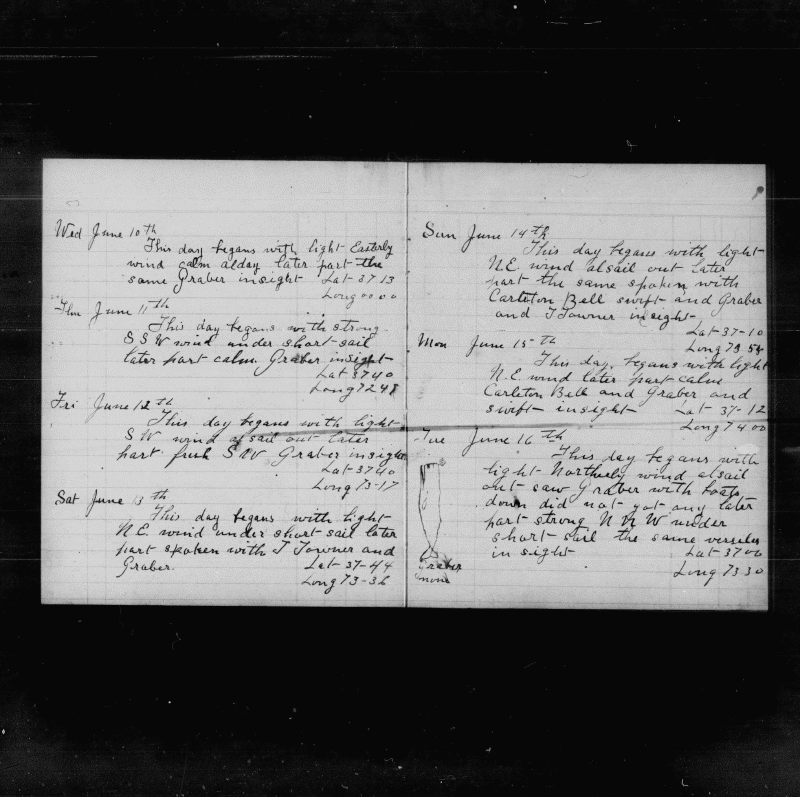 Wed June 10th
This day begans with light Easterly
wind calm alday later part the
same Graber insight Lat 37 13
Long 00 00
Thu June 11th
This day begans with strong
S S W wind under short sail
later part calm Graber insight
Lat 37 40
Long 72 48
Fri June 12th
This day begans with light
S W wind alsail out later
part fresh S W Graber insight
Lat 37 40
Long 73-17
Sat June 13th
This day begans with light
N.E. wind under short sail later
part spoken with J Towner and
Graber. Lat 37-44
Long 73-36
Sun June 14th
This day begans with light
N.E. wind alsail out later
part the same spoken with
Carleton Bell swift and Graber
and J Towner insight
Lat 37-10
Long 73 54
Mon June 15th
This day begans with light
N.E. wind later part calm
Carleton Bell and Graber and
swift insight Lat 37-12
Long 74 00
Tue June 16th
This day begans with
light Northerly wind alsail
out saw Graber with boats
down did not got any later
part strong N N W under
short sail the same vesseles
in sight Lat 37 00
Long 73 30
Graber